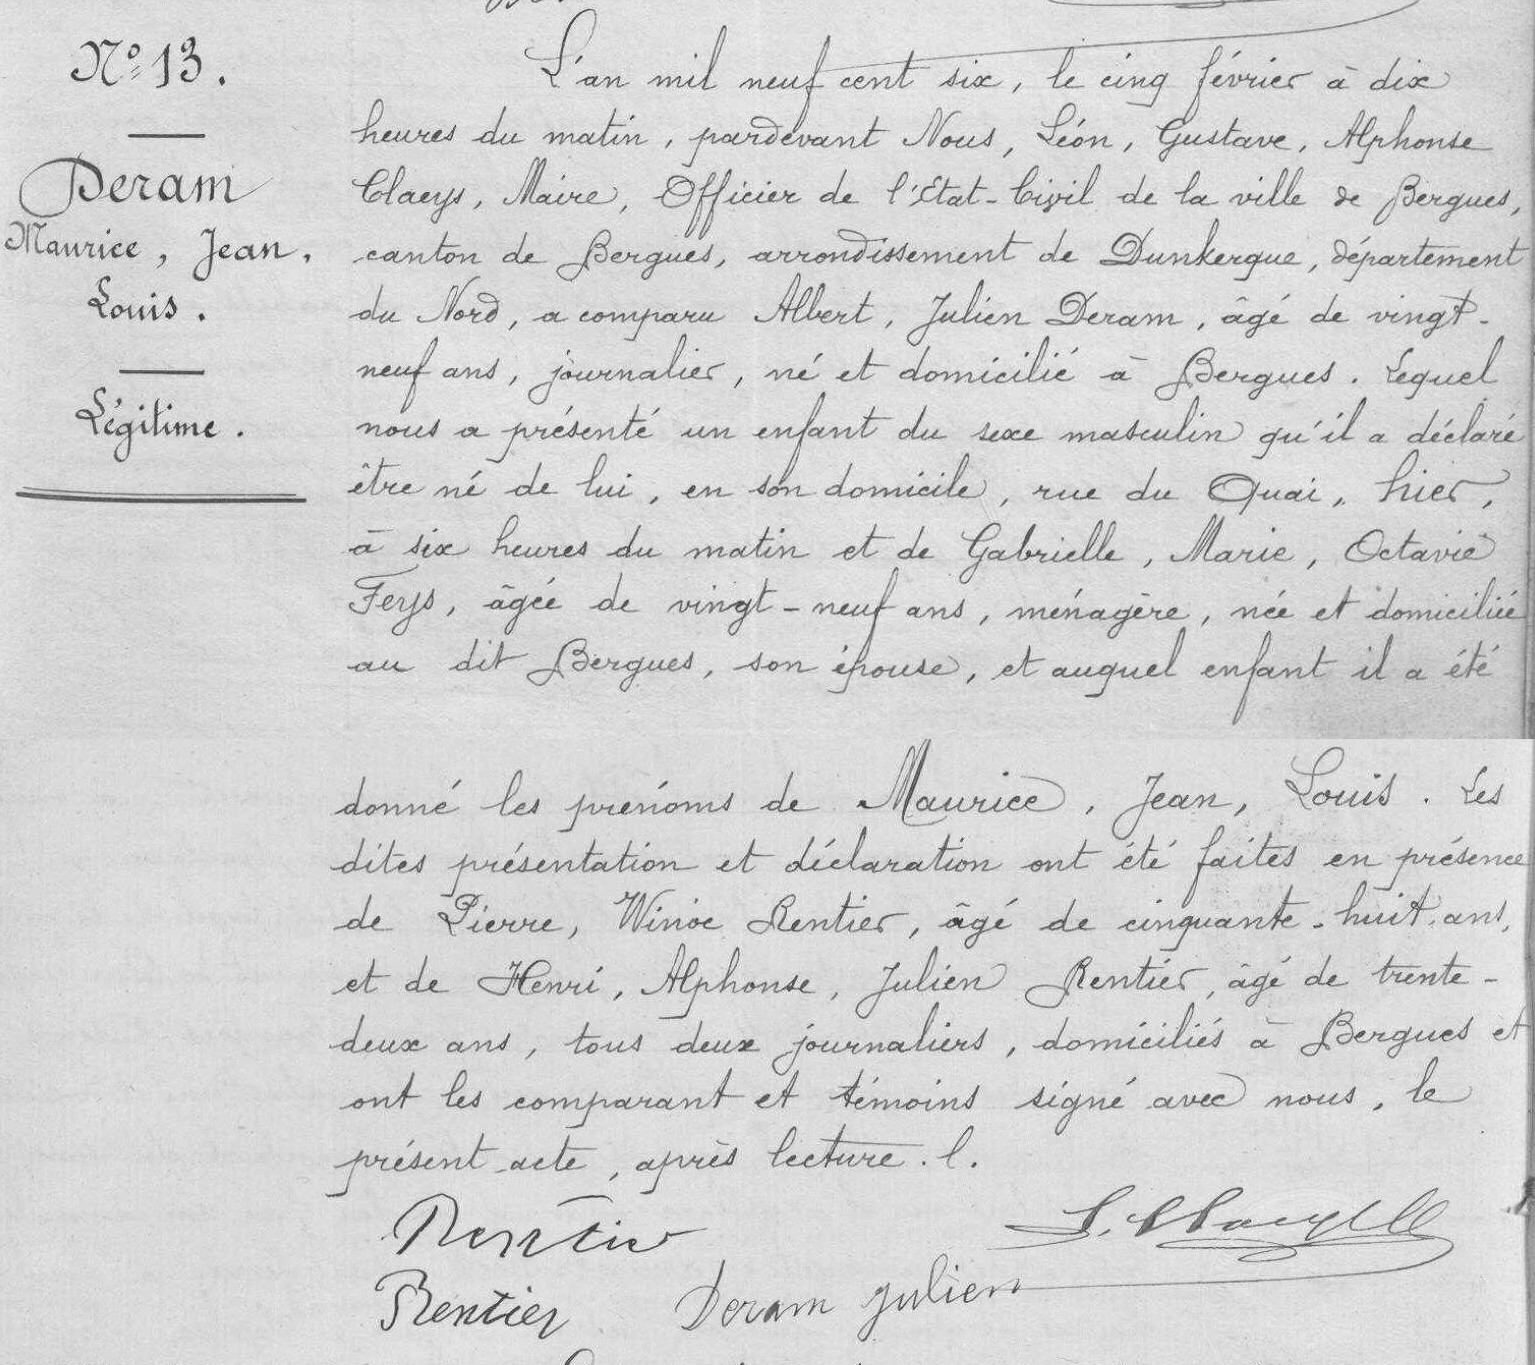 N° 13.
Deram
Maurice, Jean,
Louis.
Légitime.
L'an mil neuf cent six, le cinq février à dix
heures du matin, pardevant Nous, Léon, Gustave, Alphonse
Claeys, Maire, Officier de l'Etat-Civil de la ville de Bergues,
canton de Bergues, arrondissement de Dunkerque, département
du Nord, a comparu Albert, Julien Deram, âgé de vingt-
neuf ans, journalier, né et domicilié à Bergues. Lequel
nous a présenté un enfant du sexe masculin qu'il a déclaré
être né de lui, en son domicile, rue du Quai, hier,
à six heures du matin et de Gabrielle, Marie, Octavie
Feys, âgée de vingt-neuf ans, ménagère, née et domiciliée
au dit Bergues, son épouse, et auquel enfant il a été
donné les prénoms de Maurice, Jean, Louis. Les
dites présentation et déclaration ont été faites en présence
de Pierre, Winoc Rentier, âgé de cinquante-huit ans,
et de Henri, Alphonse, Julien Rentier, âgé de trente-
deux ans, tous deux journaliers, domiciliés à Bergues et
ont les comparant et témoins signé avec nous, le
présent acte, après lecture. l.
Rentier
L. Claeys
Rentier Deram Julien